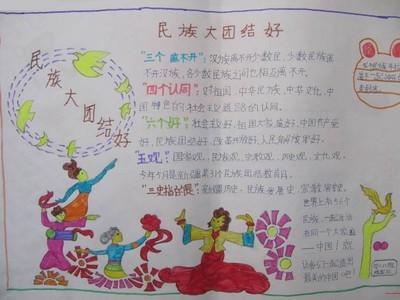 民族大团结好
民族大团结好
"三个离不开":汉族离不开少数民,少数民族离
不开汉族,各少数民族之间也相互离不开。
"四个认同":对祖国,中华民族,中华文化,中
国特色的社会主义道路的认同。
"六个好":社会主义好,祖国大家庭好,中国共产党
好,民族团结好,改革开放好,人民解放军好。
五观:国家观,民族观,宗教观,历史观,文化观,
今年5月是新疆第31个民族团结教育月。
新疆历史,民族发展史,宗教演变史,
世界上有56个
民族,一起生活
在同一个大家庭
——中国!您
让我们一起建造
最美的中国吧!